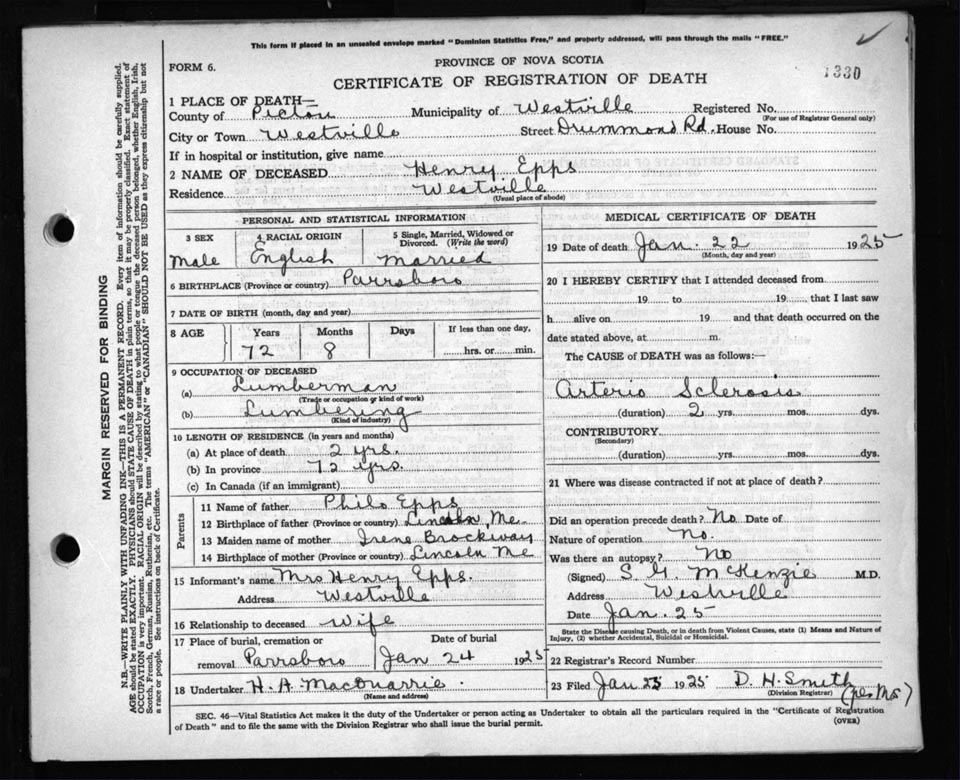 This form if placed in an unsealed envelope marked "Dominion Statistics Free," and properly addressed, will pass through the mails "FREE."
FORM 6.
PROVINCE OF NOVA SCOTIA
1330
CERTIFICATE OF REGISTRATION OF DEATH
1 PLACE OF DEATH—
County of Pictou Municipality of Westville Registered No.
(For use of Registrar General only)
City or Town Westville Street Drummond Rd. House No.
If in hospital or institution, give name
2 NAME OF DECEASED Henry Epps
Residence Westville
(Usual place of abode)
PERSONAL AND STATISTICAL INFORMATION
3 SEX 4 RACIAL ORIGIN 5 Single, Married, Widowed or Divorced. (Write the word)
Male English Married
6 BIRTHPLACE (Province or country) Parrsboro
7 DATE OF BIRTH (month, day and year)
8 AGE Years Months Days If less than one day,
72 8 hrs. or min.
9 OCCUPATION OF DECEASED
(a) Lumberman
(Trade or occupation or kind of work)
(b) Lumbering
(Kind of industry)
10 LENGTH OF RESIDENCE (in years and months)
(a) At place of death 2 yrs.
(b) In province 72 yrs.
(c) In Canada (if an immigrant)
Parents
11 Name of father Philo Epps
12 Birthplace of father (Province or country) Lincoln, Me.
13 Maiden name of mother Irene Brockway
14 Birthplace of mother (Province or country) Lincoln Me
15 Informant's name Mrs Henry Epps.
Address Westville
16 Relationship to deceased Wife
17 Place of burial, cremation or Date of burial
removal Parrsboro Jan 24 1925
18 Undertaker H. A. MacQuarrie.
(Name and address)
MEDICAL CERTIFICATE OF DEATH
19 Date of death Jan. 22 1925
(Month, day and year)
20 I HEREBY CERTIFY that I attended deceased from
19 to 19 that I last saw
h alive on 19 and that death occurred on the
date stated above, at m.
The CAUSE of DEATH was as follows:—
Arterio Sclerosis
(duration) 2 yrs. mos. dys.
CONTRIBUTORY
(Secondary)
(duration) yrs. mos. dys.
21 Where was disease contracted if not at place of death?
Did an operation precede death? No Date of
Nature of operation No.
Was there an autopsy? No
(Signed) S. G. McKenzie M.D.
Address Westville
Date Jan. 25
State the Disease causing Death, or in death from Violent Causes, state (1) Means and Nature of
Injury, (2) whether Accidental, Suicidal or Homicidal.
22 Registrar's Record Number
23 Filed Jan 25 1925 D. H. Smith
(Division Registrar)
SEC. 46—Vital Statistics Act makes it the duty of the Undertaker or person acting as Undertaker to obtain all the particulars required in the "Certificate of Registration
of Death" and to file the same with the Division Registrar who shall issue the burial permit.
(OVER)
MARGIN RESERVED FOR BINDING
N.B.—WRITE PLAINLY WITH UNFADING INK—THIS IS A PERMANENT RECORD. Every item of information should be carefully supplied.
AGE should be stated EXACTLY. PHYSICIANS should STATE CAUSE OF DEATH in plain terms, so that it may be properly classified. Exact statement of
OCCUPATION is very important. RACIAL ORIGIN will be described by stating to what people or tongue the deceased person belonged, whether English, Irish,
Scotch, French, German, Russian, Ruthenian, etc. The terms "AMERICAN" or "CANADIAN" SHOULD NOT BE USED as they express citizenship but not
a race or people. See instructions on back of Certificate.